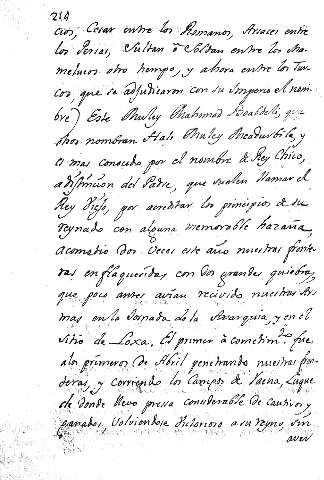 214
cios, Cesar entre los Romanos, Arsaces entre
los Persas, Sultan ô Soldan entre los Ma-
melucos otro tiempo, y ahora entre los Tur-
cos, que se adjudicaron con su Imperio el nom-
bre) Este Muley Mahomad Boabdeli, que
otros nombran Hali Muley, y
es mas conocido por el nombre de Rey Chico,
a distincion del Padre, que suelen llamar el
Rey Viejo, por acreditar los principios de su
reynado con alguna memorable hazaña,
acometio dos veces este año nuestras fronte-
ras enflaquecidas con dos grandes quiebras,
que poco antes avian recivido nuestras Ar-
mas en la Jornada de la Axarquia, y en el
sitio de Loxa. El primer acometim.to fue
a los primeros de Abril penetrando nuestras fron-
deras, y corriendo los Campos de Vaena, Luque
de donde llevo pressa considerable de Cautivos, y
ganados, volviendose victorioso a su reyno, sin
aver